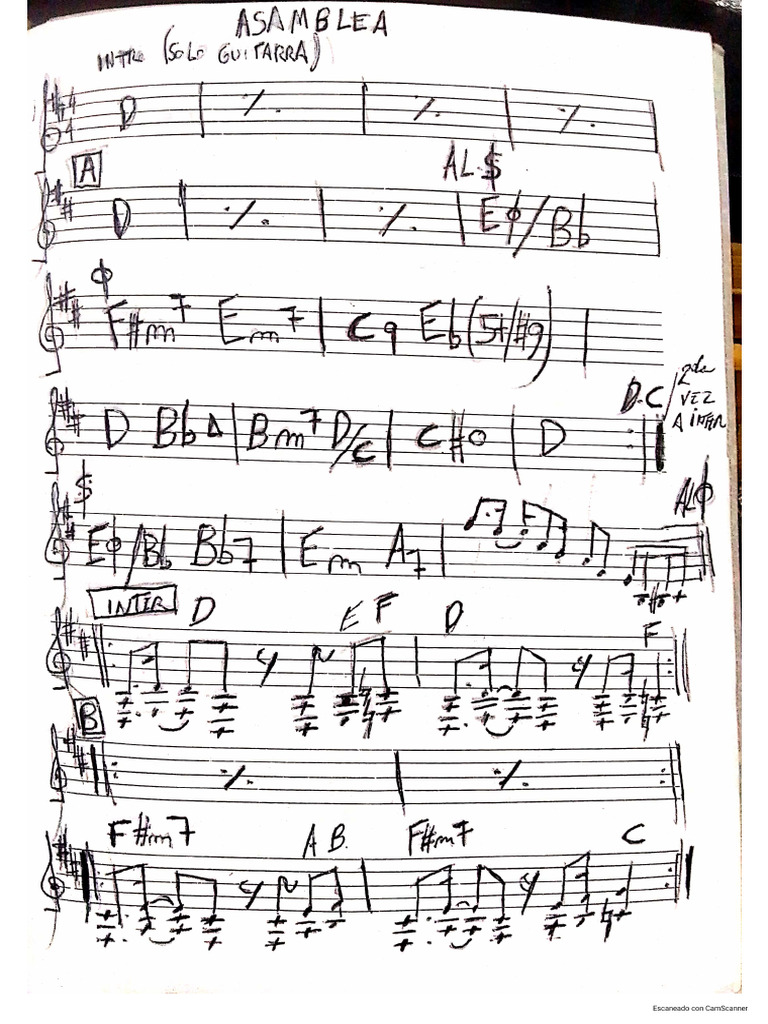 ASAMBLEA
INTRO (SOLO GUITARRA)
4/4 D
A AL 𝄋
D Eφ/Bb
F#m7 Em7 C9 Eb(5+/#9)
D.C / 2da VEZ A INTER
D BbΔ Bm7 D/C C#o D
𝄋 AL φ
Eφ/Bb Bb7 Em A7
INTER D E F D F
B
F#m7 A B F#m7 C
Escaneado con CamScanner